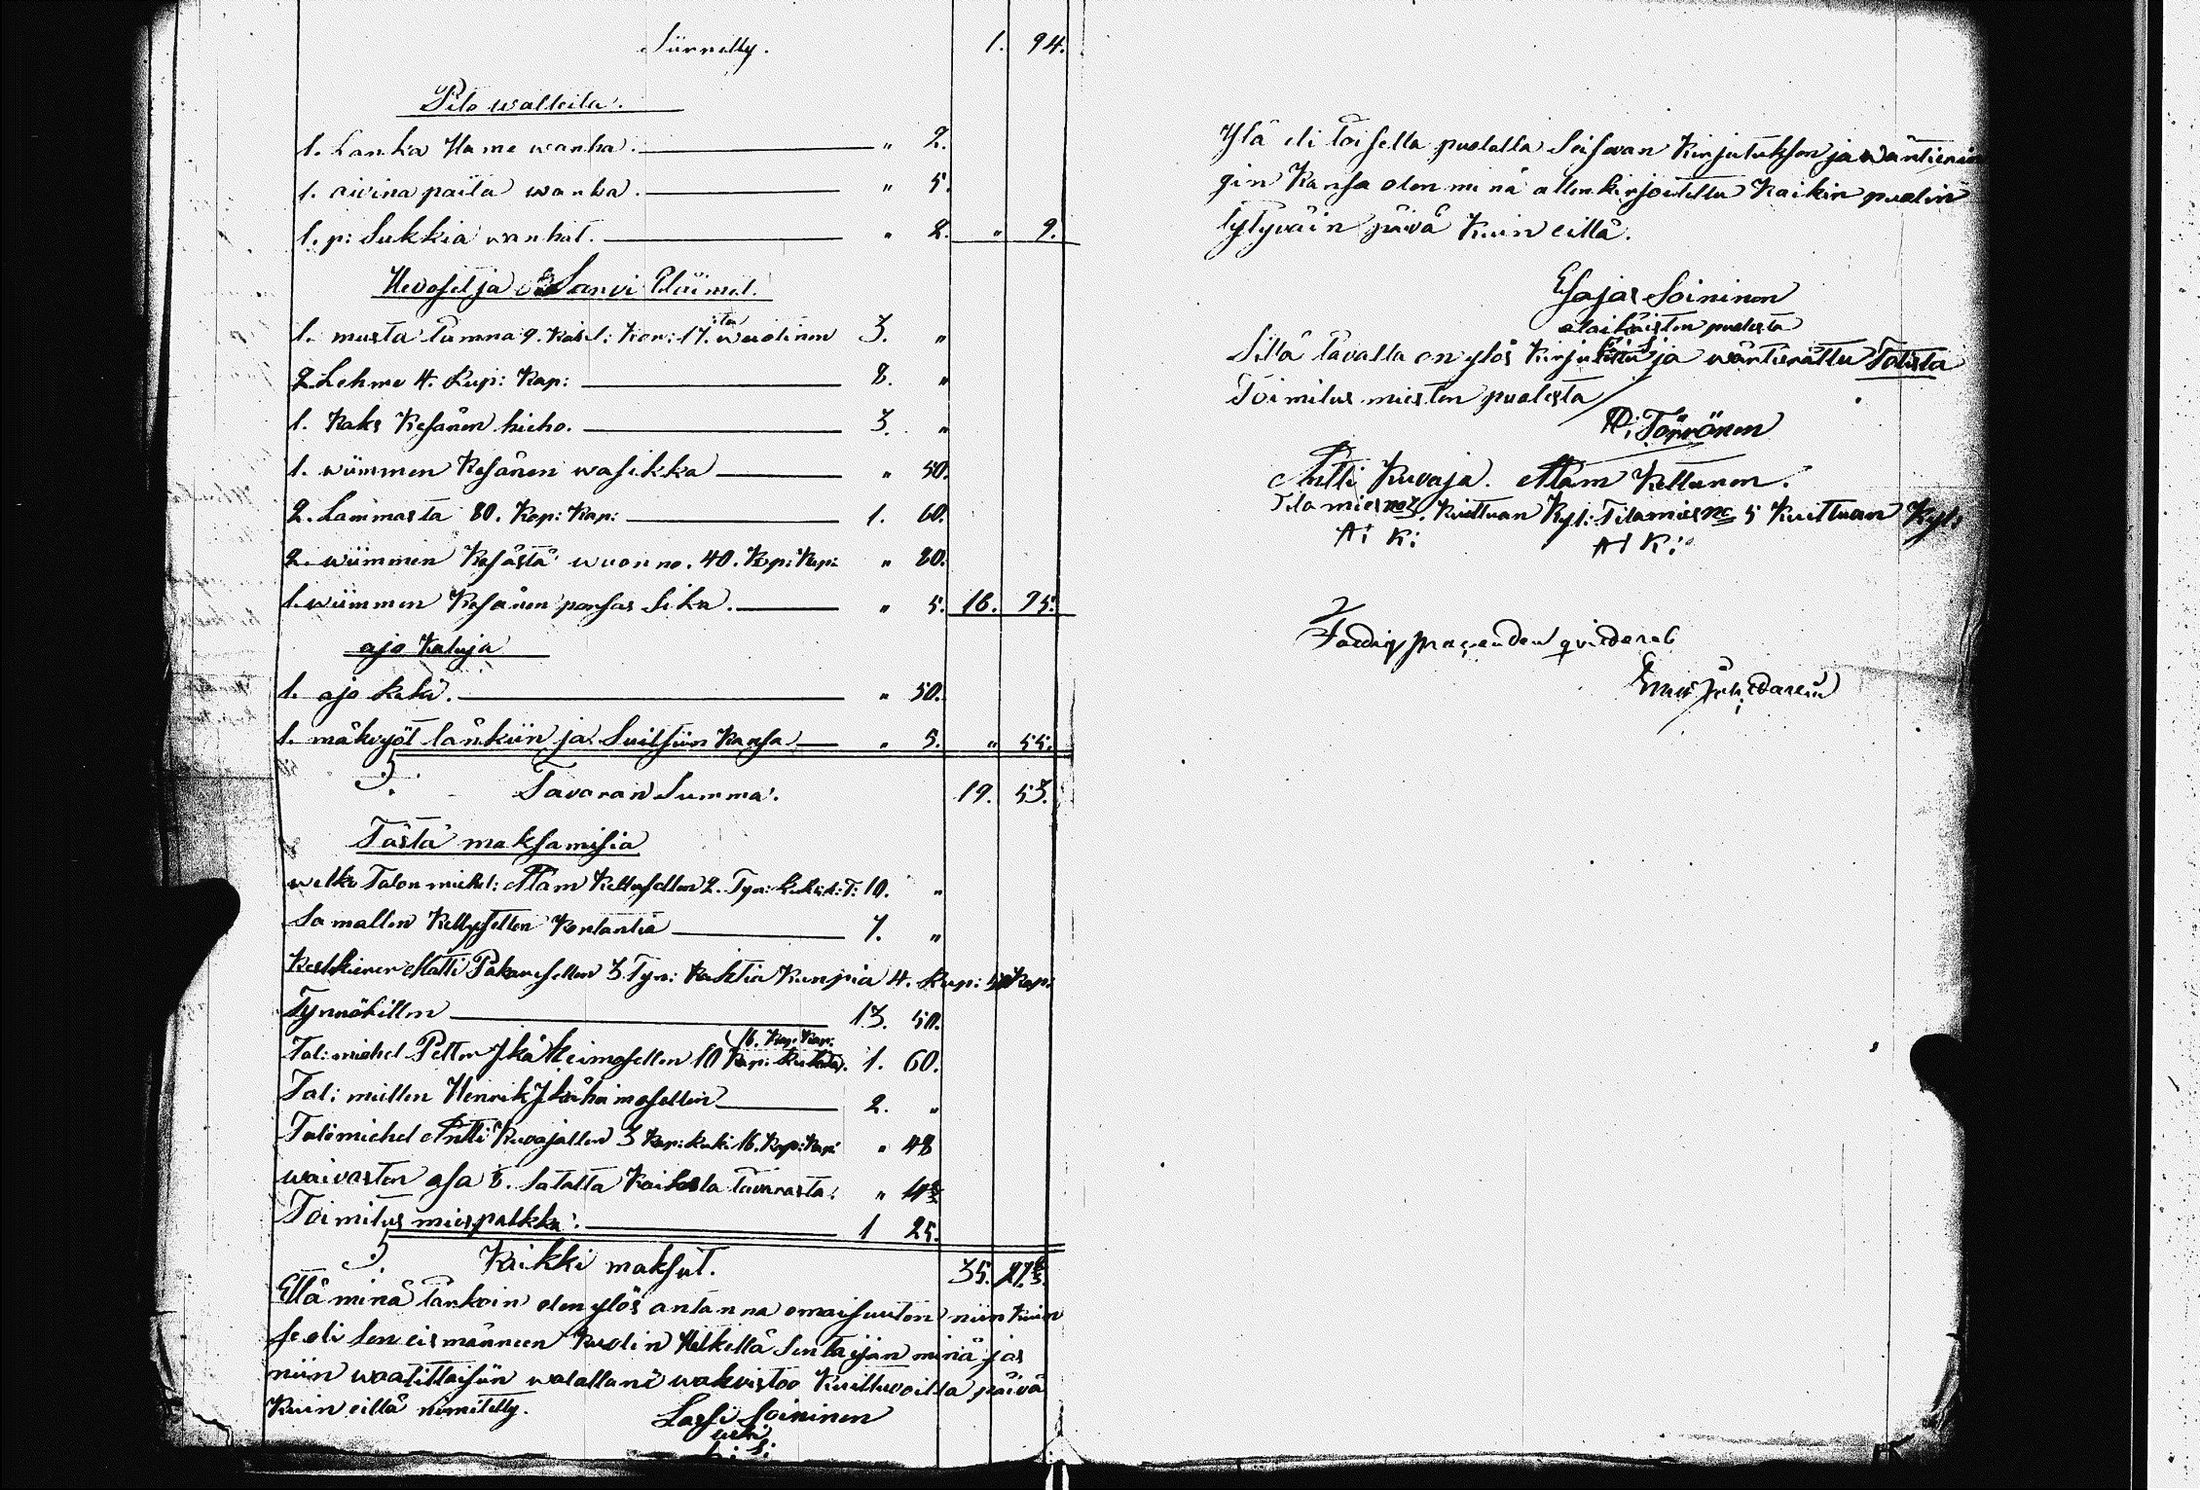 Siirretty. 1. 94.
Pito watteita.
1. Lanka Hame wanha. " 2.
1. aivina paita wanha. " 5.
1. p: Sukkia wanhat. " 2. " 9.
Hevoset ja Sarvi Eläimet.
1. musta Tamma 9. Rub: Kop: 17.sta wuotinen 3. "
2 Lehme 4. Rup: Kap: 8. "
1. Kaks Kesänen hieho. 3. "
1. wiimmen Kesänen wasikka " 50.
2. Lammasta 80. Kop: Kap: 1. 60.
2. wiimmen Kesästä wuonna. 40. Kop: Kap: " 80.
1. wiimmen Kesänen porsas Sika. " 5. 16. 95.
ajo Kaluja
1. ajo Reki. " 50.
1. mäkvyöt länkiin ja Suitsiin Kansa " 5. " 55.
Tavaran Summa. 19. 53.
Tästä maksamisia
welka Talon miehel: Adam Kettusellen 2. Tyn: T: 10. "
Samallen Kettusellen 7. "
Matti Pakarisellen 3. Tyn: Kauhtia 4. Rup: 50 Kop:
Tynnörillen 13. 50.
16. Kop: Kap:
Tal: miehel Petter Ikäheimosellen 10 Kap: Rukita. 1. 60.
Tal: miellen Henrik Ikäheimosellen 2. "
Talomiehel Antti Kuvajallen 3 Kap: Ruki 16. Kop: Kap: " 48
waivasten osa 8. Satalta Kaikesta tavarasta. "
Toimitus miespalkka. 1 25.
Kaikki maksut. 35.
Että minä tarkoin olen ylös antanna omaisuuten niin Kuin
se oli Sen eismänneen Kuolin Hetkellä Sen taijan minä jos
niin waatittaisiin walallani wahvistoo Kuittuvoilla päivä
Kuin eillä nimitetty.
Lassi Soininen
L: S:
Ylä eli toisella puolella Seisovan Kirjutukson ja wärtierin
gin Kansa olen minä allenkirjoitettu Kaikin puolin
tytyväin päivä Kuin eillä.
Esajas Soininen
alaikäisten puolesta
E: S:
Sillä tavalla on ylös Kirjutettu ja wärtierättu Totista
Toimitus miesten puolesta
P: Törrönen
Antti Kuvaja. Adam Kettunen.
Tila mies no 3. Kuittuan Kyl: Tilamies no 5 Kuittuan Kyl:
A: K: A: K: